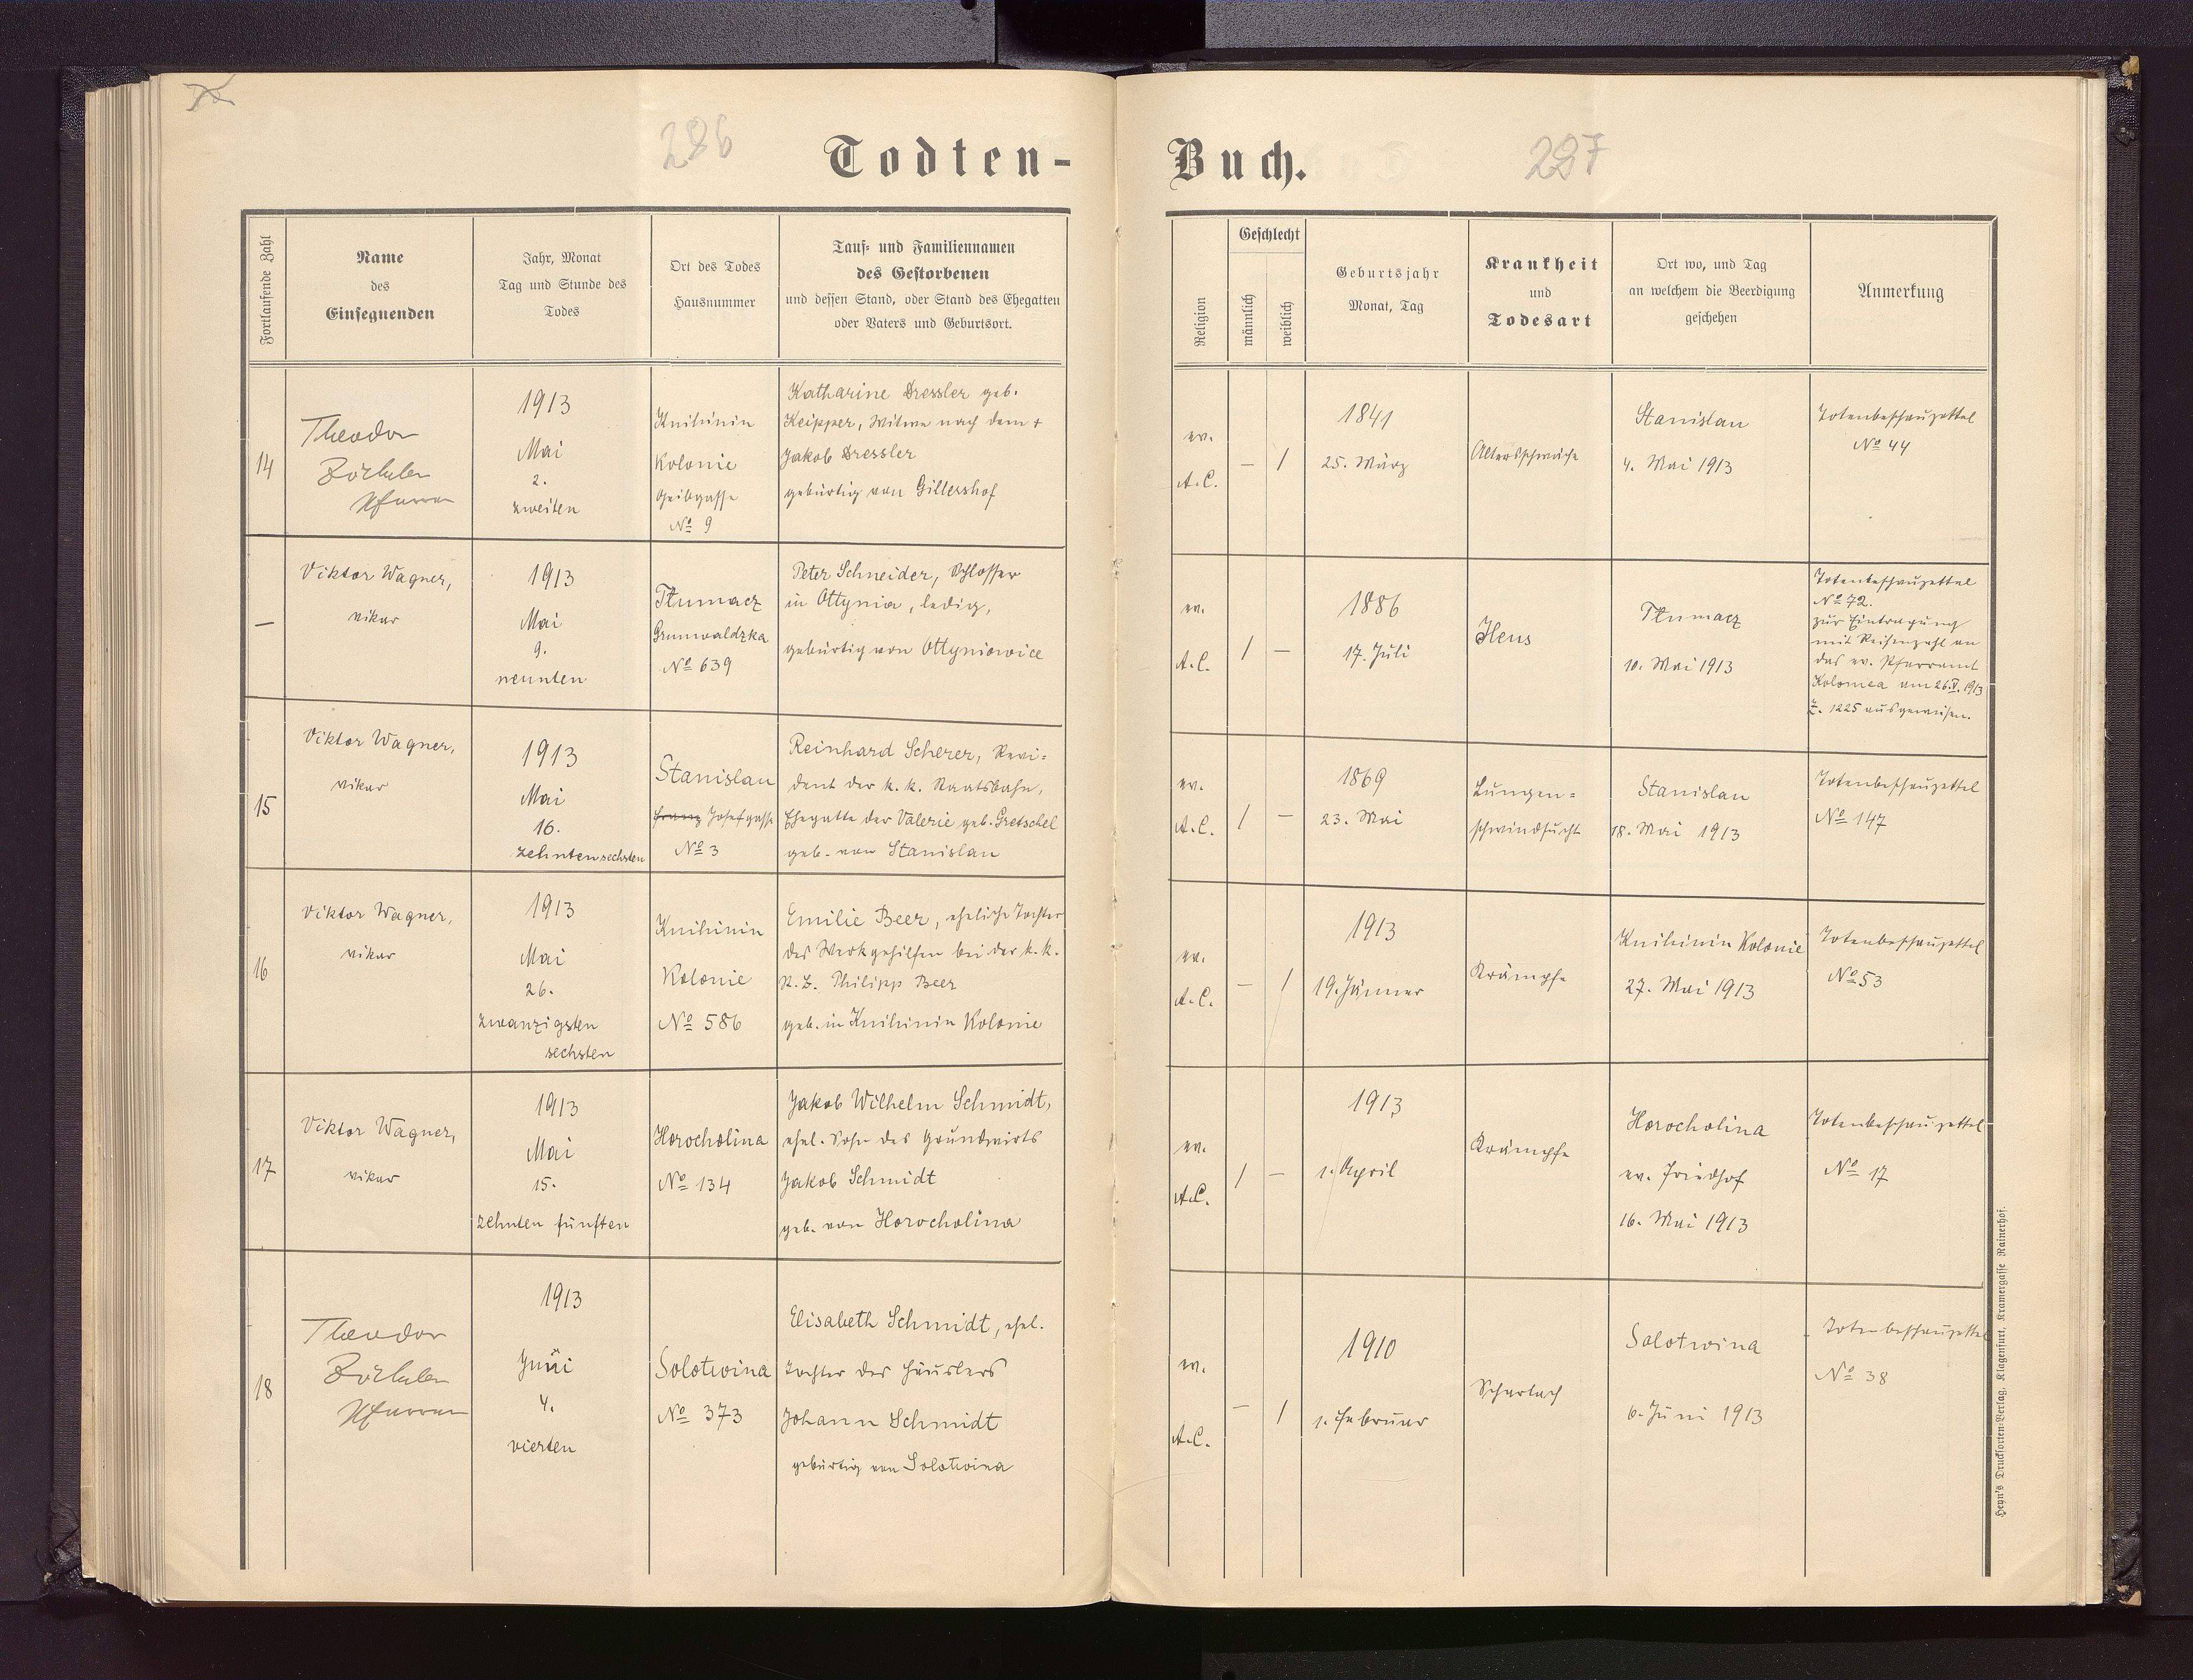 286
Todten-
Fortlaufende Zahl
Name
des
Einsegnenden
Jahr, Monat
Tag und Stunde des
Todes
Ort des Todes
Hausnummer
Tauf- und Familiennamen
des Gestorbenen
und dessen Stand, oder Stand des Ehegatten
oder Vaters und Geburtsort.
14
Theodor
Zöckler
Pfarrer
1913
Mai
2.
zweiten
Knihinin
Kolonie
Geibgasse
No 9
Katharine Dressler geb.
Keipper, Witwe nach dem +
Jakob Dressler
gebürtig von Gillershof
—
Viktor Wagner,
Vikar
1913
Mai
9.
neunten
Tłumacz
Grunwaldzka
No 639
Peter Schneider, Schlosser
in Ottynia, ledig,
gebürtig von Ottyniowice
15
Viktor Wagner,
Vikar
1913
Mai
16.
zehnten sechsten
Stanislau
Franz Josefgasse
No 3
Reinhard Scherer, Revi=
dent der k. k. Staatsbahn,
Ehegatte der Valerie geb. Gretschel
geb. von Stanislau
16
Viktor Wagner,
Vikar
1913
Mai
26.
zwanzigsten
sechsten
Knihinin
Kolonie
No 586
Emilie Beer, eheliche Tochter
des Werkgehilfen bei der k. k.
St. B. Philipp Beer
geb. in Knihinin Kolonie
17
Viktor Wagner,
Vikar
1913
Mai
15.
zehnten fünften
Horocholina
No 134
Jakob Wilhelm Schmidt,
ehel. Sohn des Grundwirts
Jakob Schmidt
geb. von Horocholina
18
Theodor
Zöckler
Pfarrer
1913
Juni
4.
vierten
Solotwina
No 373
Elisabeth Schmidt, ehel.
Tochter des Häuslers
Johann Schmidt
gebürtig von Solotwina
Buch.
287
Religion
Geschlecht
männlich
weiblich
Geburtsjahr
Monat, Tag
Krankheit
und
Todesart
Ort wo, und Tag
an welchem die Beerdigung
geschehen
Anmerkung
ev.
A.C.
— 1
1841
25. März
Altersschwäche
Stanislau
4. Mai 1913
Totenbeschauzettel
No 44
ev.
A.C.
1 —
1886
17. Juli
Tłumacz
10. Mai 1913
Totenbeschauzettel
No 72.
zur Eintragung
mit Reihenzahl an
das ev. Pfarramt
Kolomea am 26.V.1913
Z. 1225 ausgewiesen.
ev.
A.C.
1 —
1869
23. Mai
Lungen=
schwindsucht
Stanislau
18. Mai 1913
Totenbeschauzettel
No 147
ev.
A.C.
— 1
1913
19. Jänner
Krämpfe
Knihinin Kolonie
27. Mai 1913
Totenbeschauzettel
No 53
ev.
A.C.
1 —
1913
1. April
Krämpfe
Horocholina
ev. Friedhof
16. Mai 1913
Totenbeschauzettel
No 17
ev.
A.C.
— 1
1910
1. Februar
Scharlach
Solotwina
6. Juni 1913
Totenbeschauzettel
No 38
Heyn's Drucksorten-Verlag, Klagenfurt, Kramergasse Rainerhof.